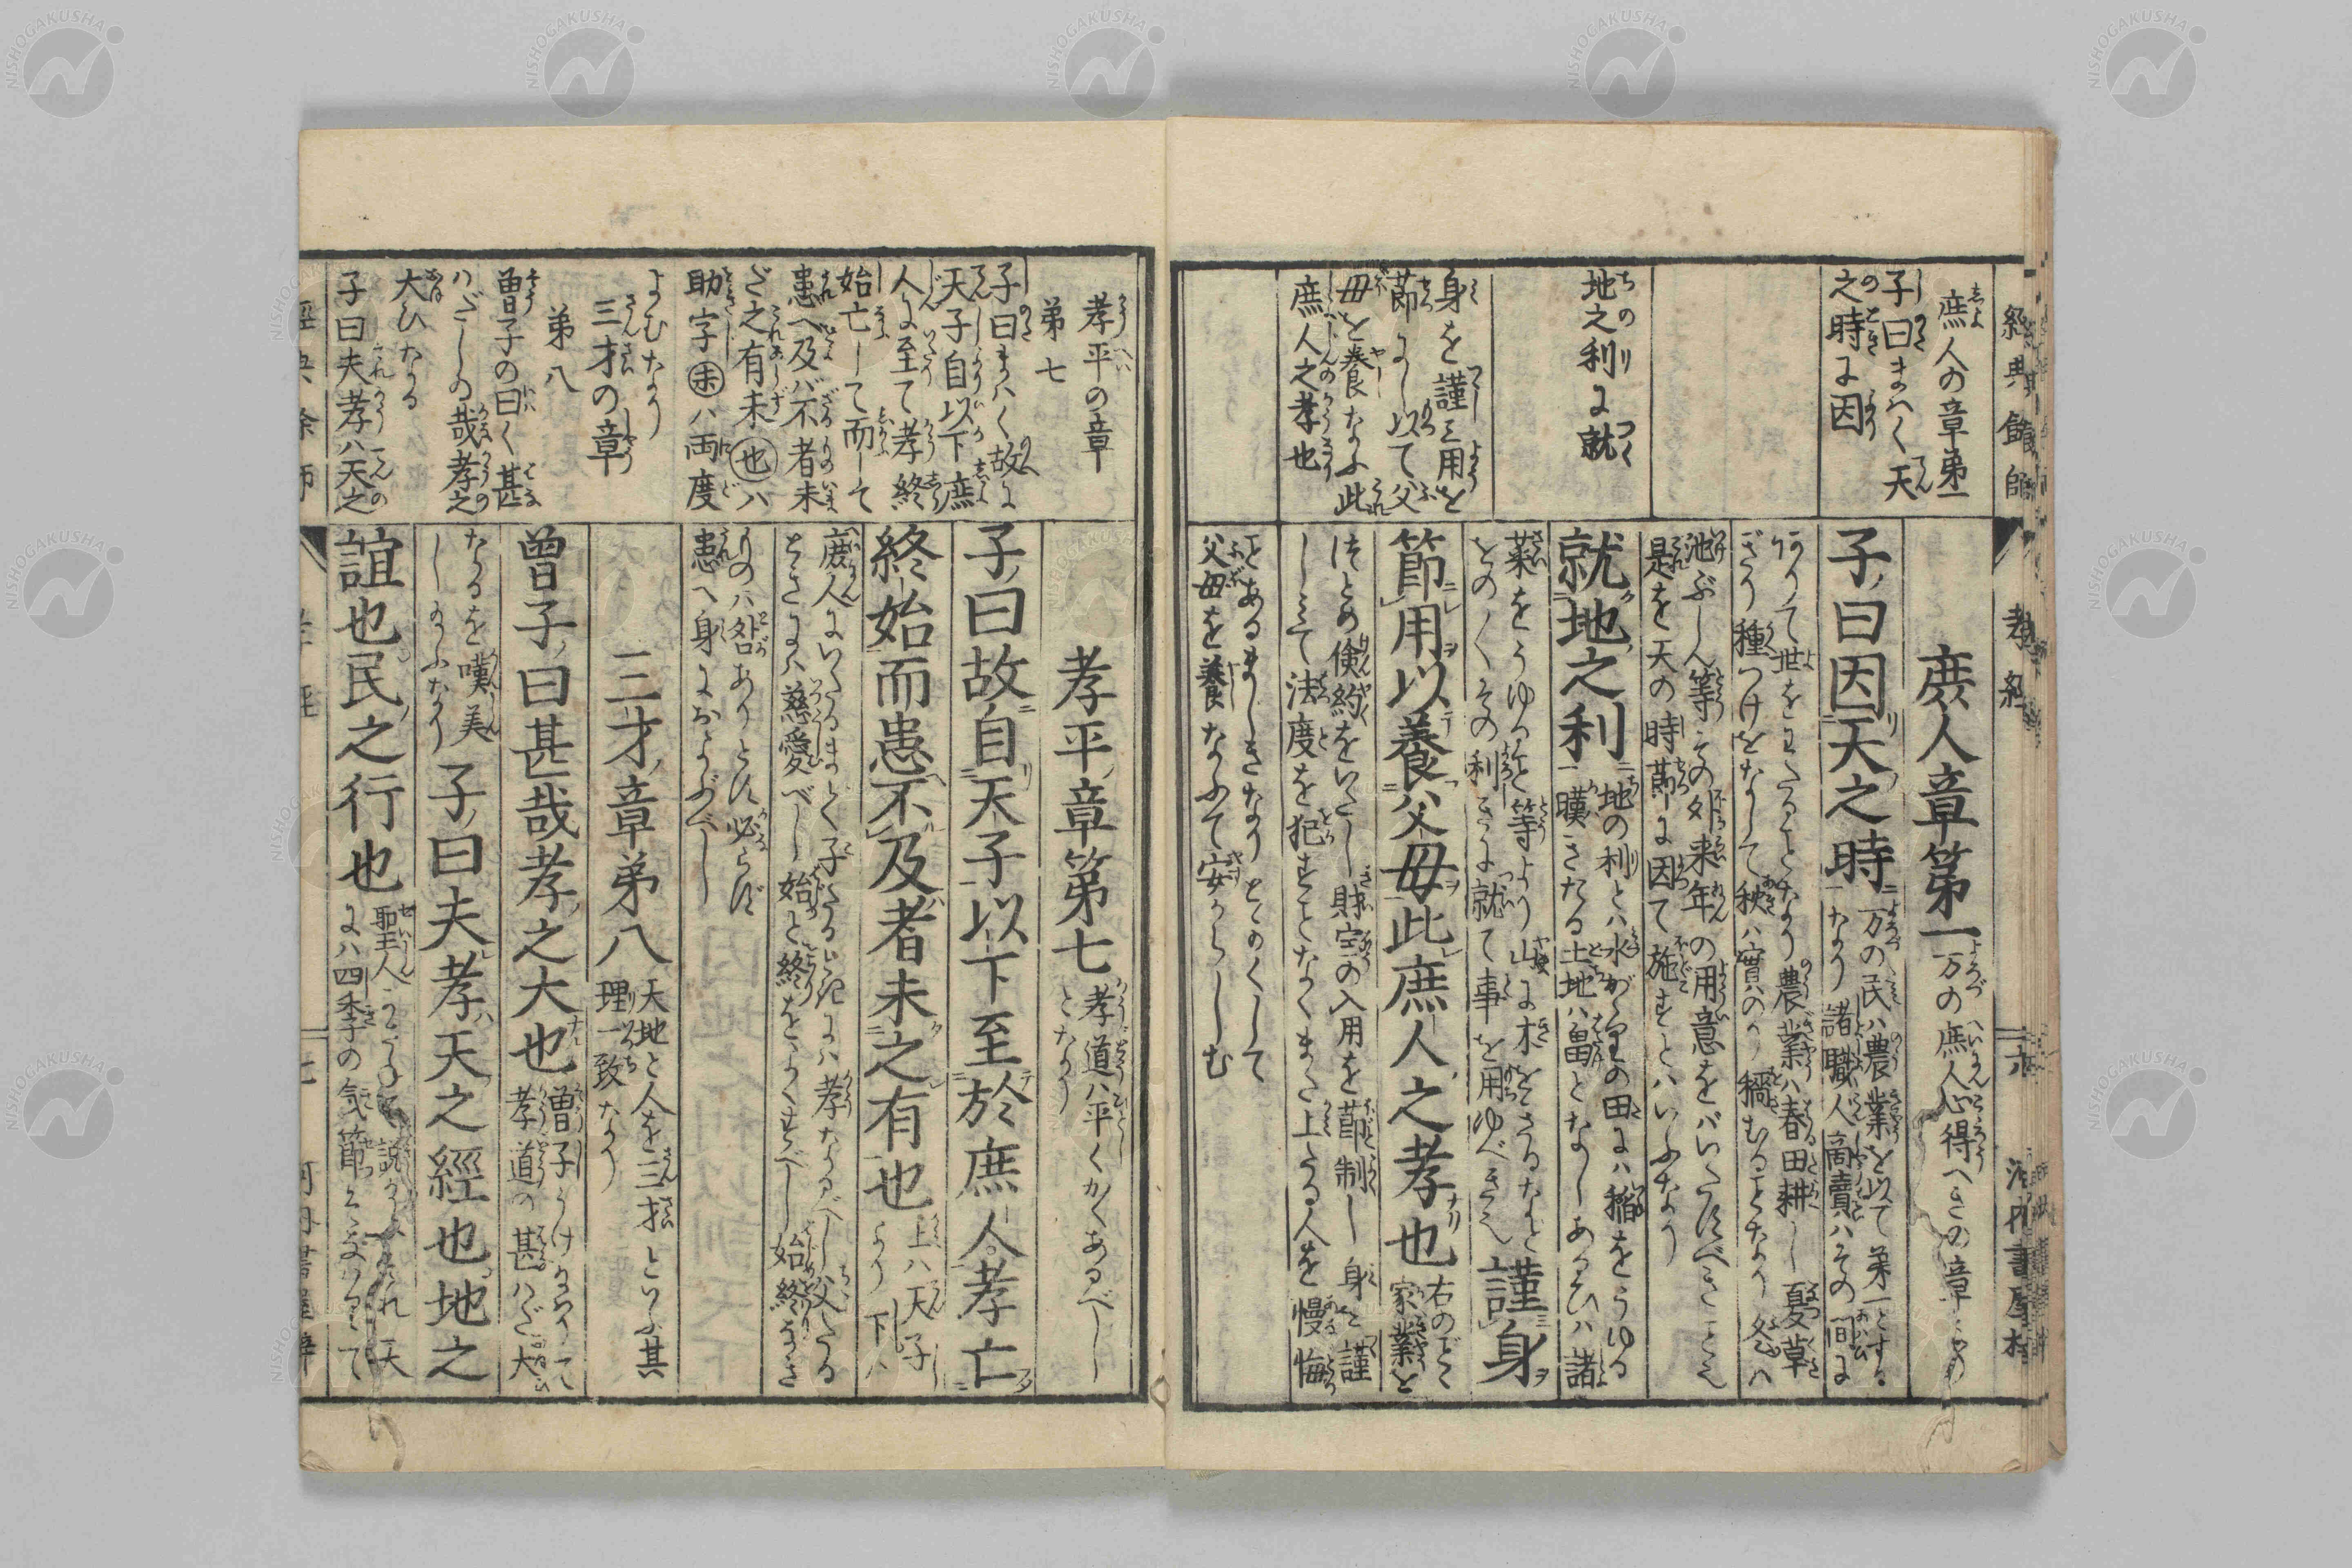 経典餘師
孝経
六
庶人の章第一
子曰まハく天
之時に因
地之利に就
身を謹ミ用を
節にし以て父
母を養なふ此
庶人之孝也
庶人章第一 万の庶人心得べきの章
子曰因天之時 万の民ハ農業を以て第一とする
なり諸職人商賣ハその間に
ありて世をわたることなり農業ハ春田耕し夏草
ぎり種つけをなして秋ハ實のり穡むることなり冬ハ
池ぶしん等その外来年の用意をバいたすべきことミ
是を天の時節に因て施すとハいふなり
就地之利 地の利とハ水がゝりの田にハ稲をうゆる
暵きたる土地ハ畠となしあるひハ諸
菜をうゆると等よりり山に木をきるなど
をの〱その利きに就て事を用ゆべきミ 謹身
節用以養父母此庶人之孝也 右のごとく
家業を
つとめ倹約をいたし財宝の入用を節制し身を謹
しミて法度を犯すことなくまた上たる人を慢侮
ことあるまじきなりとかくして
父母を養なふて安からしむ
孝平の章
第七
子曰まハく故に
天子自以下庶
人に至て孝終
始亡して而して
患へ及バ不者未
ざ之有未也ハ
助字未ハ両度
よむなり
三才の章
第八
曽子の曰く甚
ハだしの哉孝之
大ひなる
子曰夫孝ハ天之
孝平章第七 孝道ハ平くかくあるべし
となり
子曰故自天子以下至於庶人孝亡
終始而患不及者未之有也 上ハ天子
より下ハ
庶人にいたるまでく子たるときにハ孝なるべし父たる
ときにハ慈愛べし始と終をよくすべし始終なき
ものハ外ありとも必らず
患へ身におよぶべし
三才章第八 天地と人を三才といふ其
理一致なり
曽子曰甚哉孝之大也 曽子うけたまハりて
孝道の甚ハだ大ひ
なるを嘆美
しまふなり 子曰夫孝天之經也地之
誼也民之行也 聖人
にハ四季の気節
經典餘師